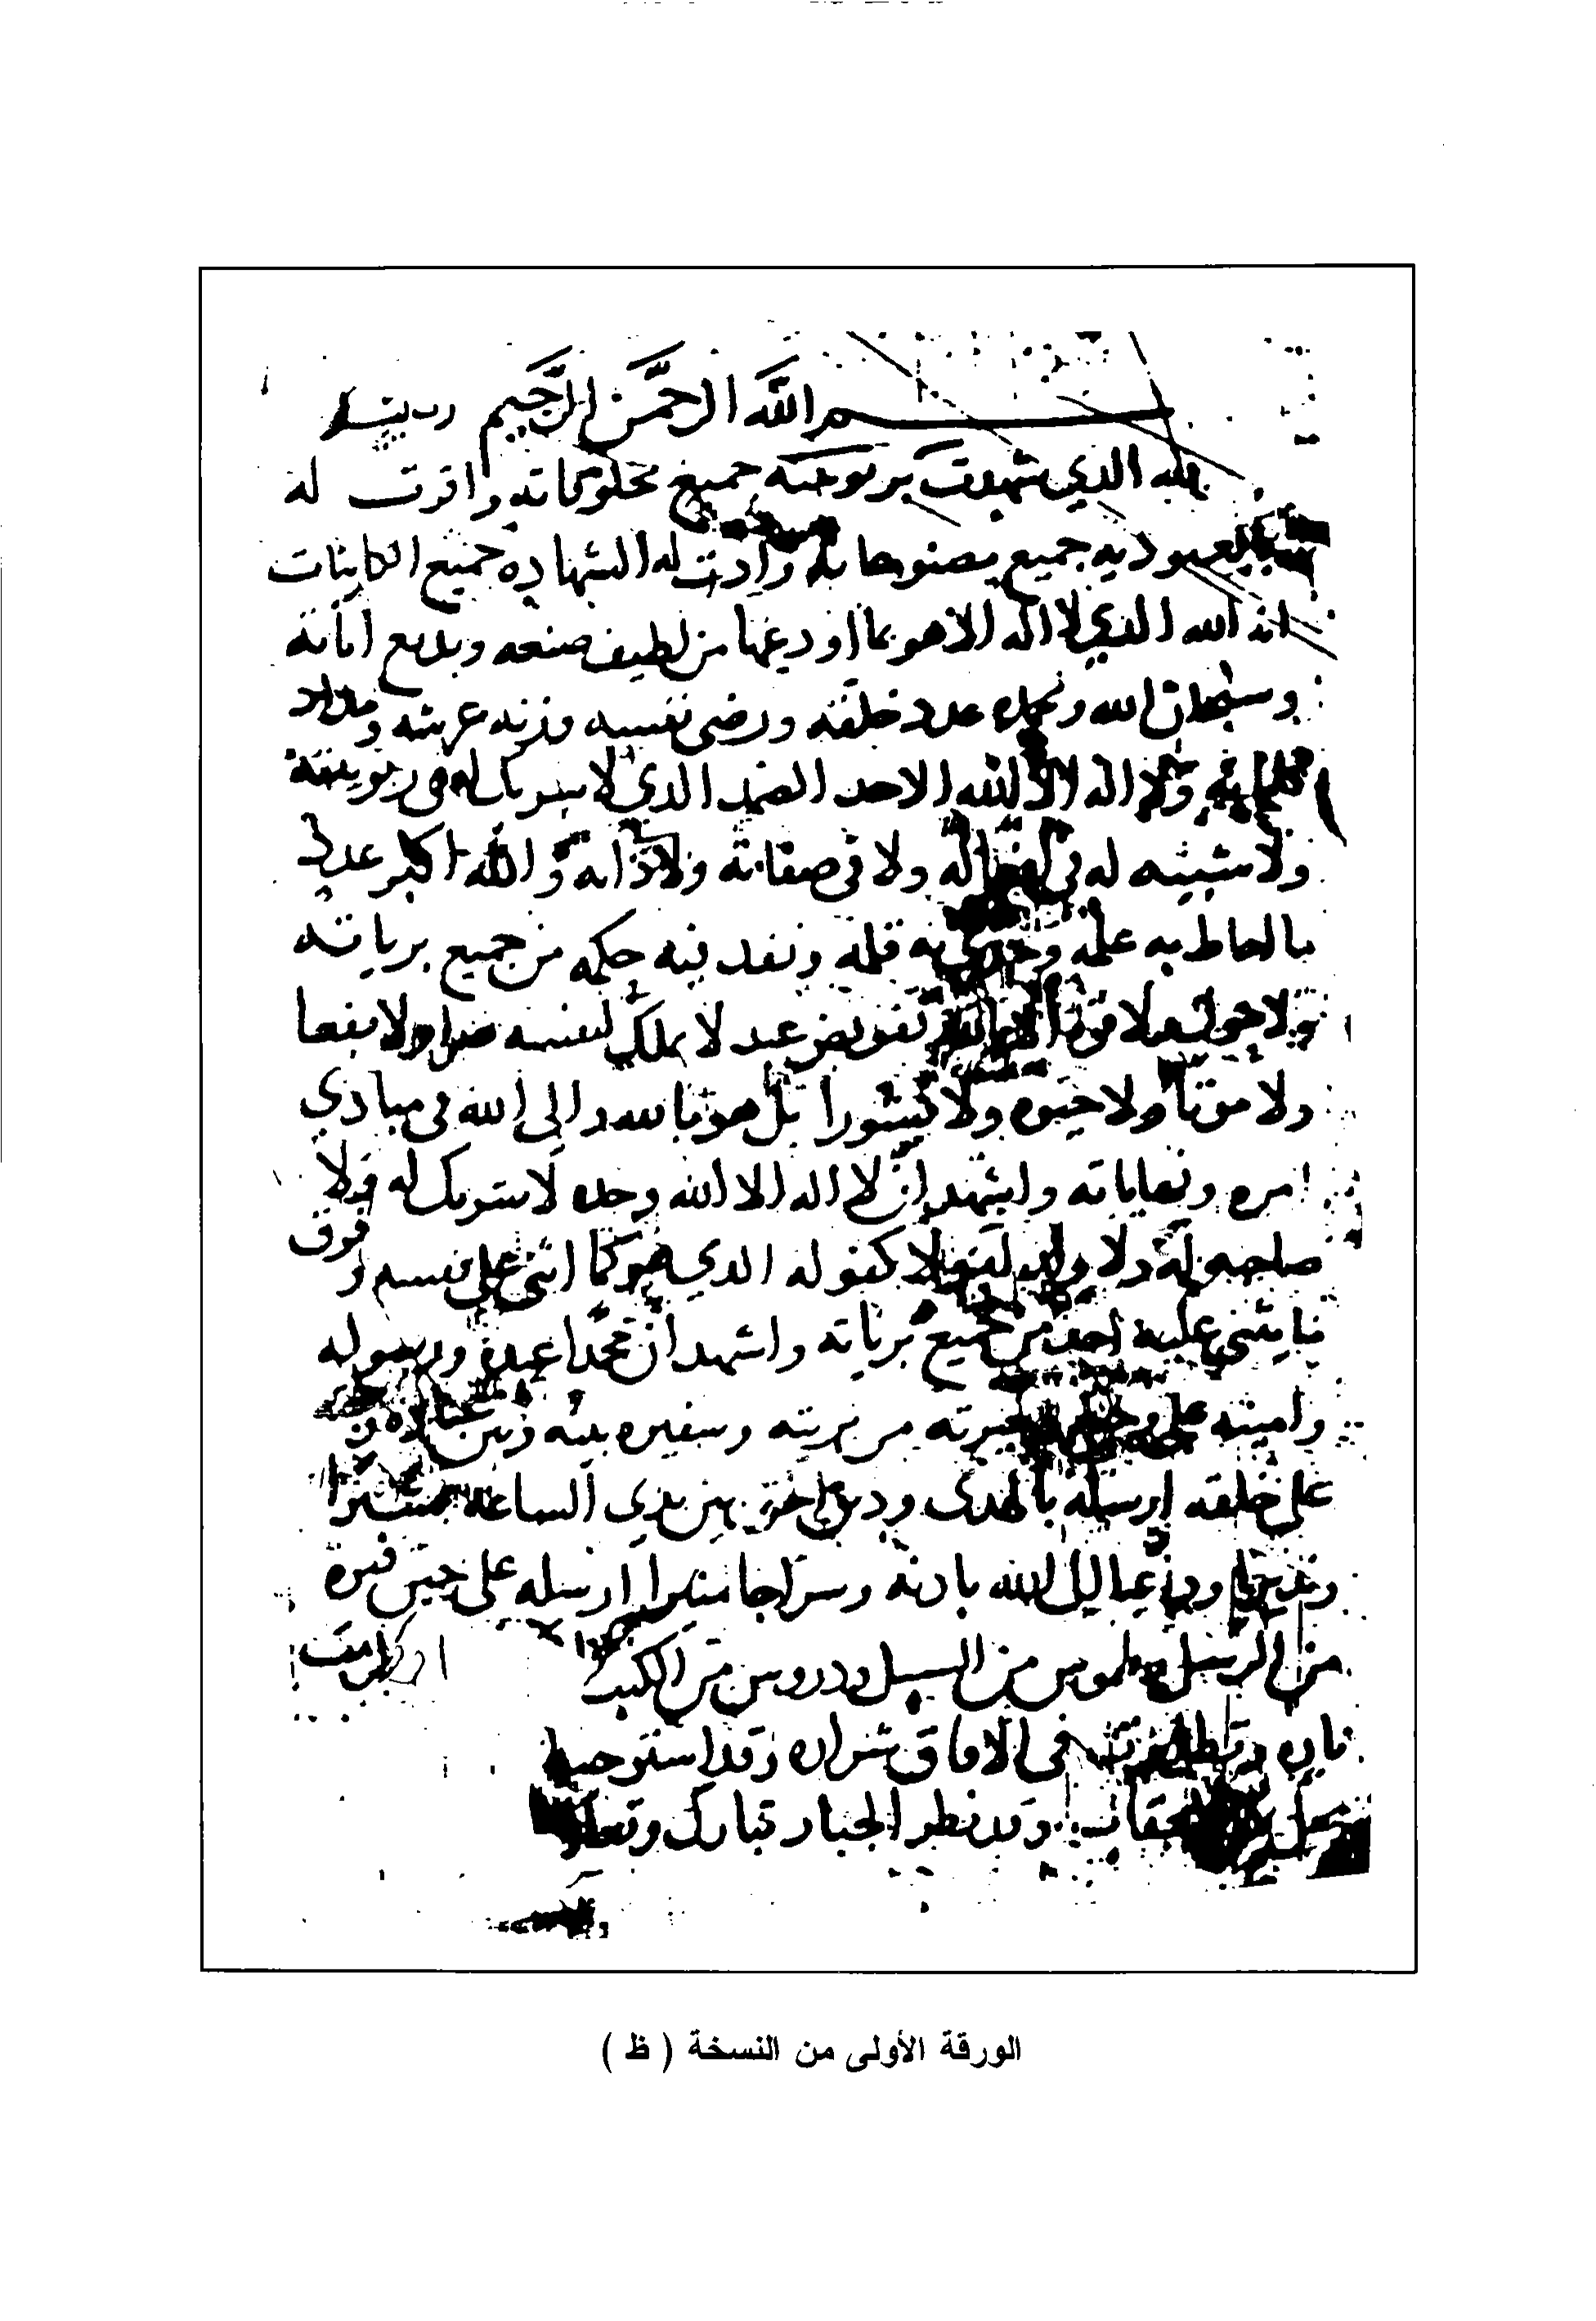 بسم الله الرحمن الرحيم رب يسر
لله الذي شهدت بربوبيته جميع مخلوقاته واقرت له
بالعبوديه جميع مصنوعاته وادت له الشهاده جميع الكاينات
انه الله الذي لا اله الا هو بما اودعها من لطيف صنعه وبديع اياته
وسبحان الله وبحمده عدد خلقه ورضى نفسه وزنه عرشه ومداد
كلماته ولا اله الا الله الاحد الصمد الذي لا شريك له في ربوبيته
ولا شبيه له في افعاله ولا في صفاته ولا ذاته والله اكبر عدد
ما احاط به علمه وجرى به قلمه ونفد فيه حكمه من جميع برياته
ولا حول ولا قوة الا بالله تفويض عبد لا يملك لنفسه ضرا ولا نفعا
ولا موتا ولا حيوه ولا نشورا بل هو بالله والى الله في مبادي
امره ونهاياته واشهد ان لا اله الا الله وحده لا شريك له ولا
صاحبه له ولا ولد له ولا كفو له الذي هو كما اثنى على نفسه وفوق
ما يثني عليه احد من جميع برياته واشهد ان محمدا عبده ورسوله
وامينه على وحيه وخيرته من بريته وسفيره بينه وبين عباده
على خلقه ارسله بالهدى ودين الحق بين يدي الساعه بشيرا
ونذيرا وداعيا الى الله باذنه وسراجا منيرا ارسله على حين فترة
من الرسل وطموس من السبل ودروس من الكتب
ناره وتطاير في الافاق شراره وقد استوجب
العقاب وقد نظر الجبار تبارك وتعالى
الورقة الأولى من النسخة ( ظ )